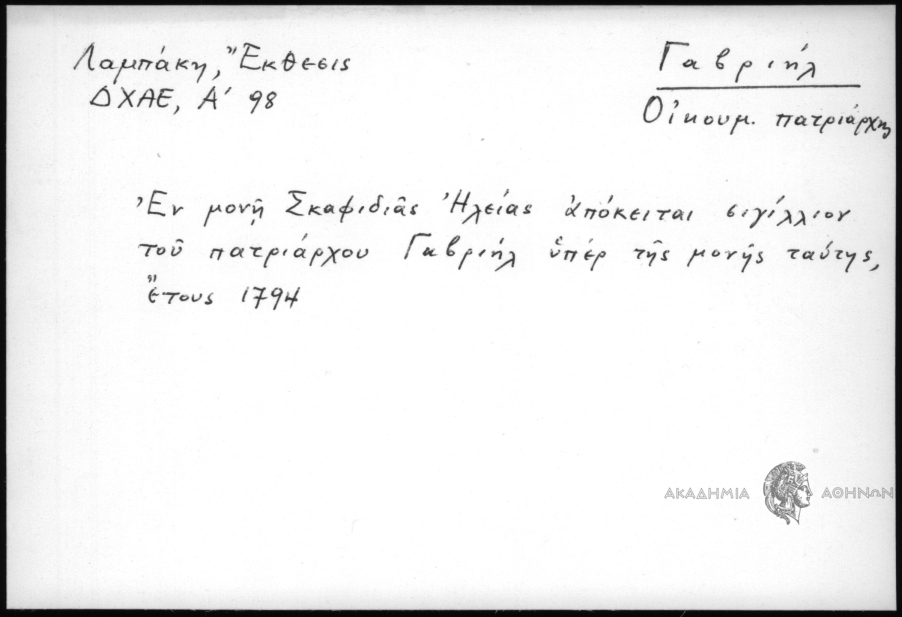 Λαμπάκη, Ἔκθεσις
ΔΧΑΕ, Α' 98
Γαβριήλ
Οἰκουμ. πατριάρχης
Ἐν μονῇ Σκαφιδιᾶς Ἠλείας ἀπόκειται σιγίλλιον
τοῦ πατριάρχου Γαβριήλ ὑπέρ τῆς μονῆς ταύτης,
ἔτους 1794
ΑΚΑΔΗΜΙΑ ΑΘΗΝΩΝ